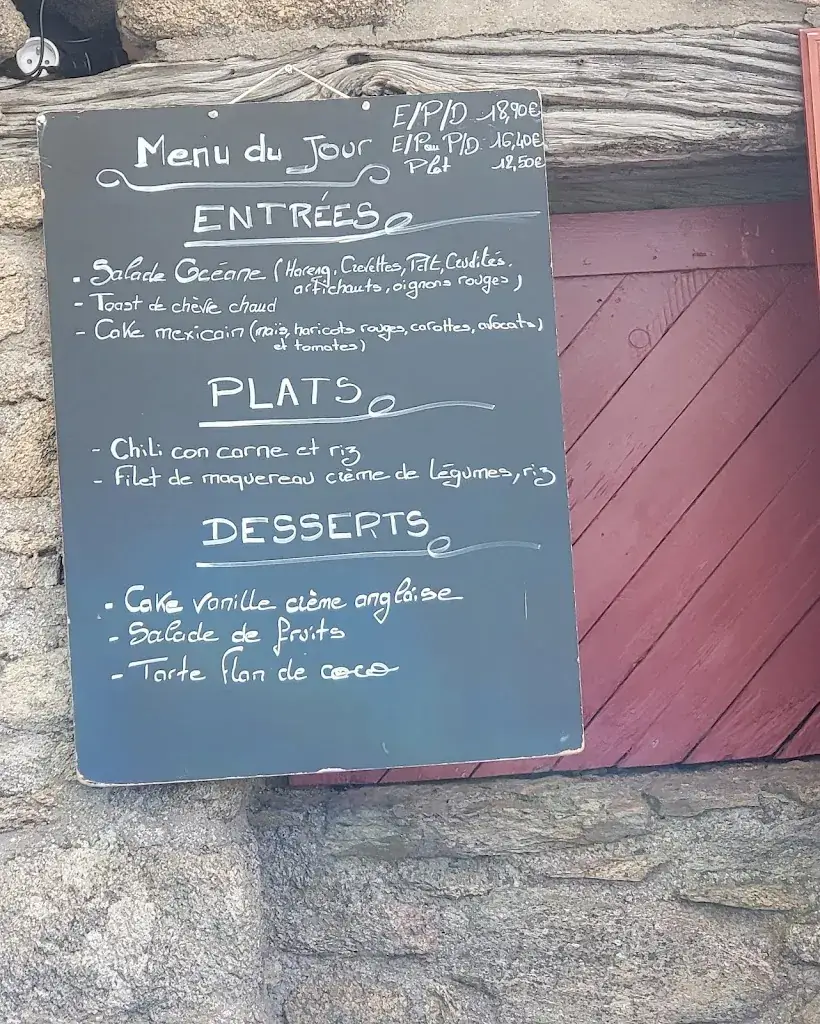 Menu du Jour
E/P/D 18,90€
E/P ou P/D 16,40€
Plat 12,50€
ENTRÉES
- Salade Océane (Hareng, Crevettes, Crudités,
artichauts, oignons rouges)
- Toast de chèvre chaud
- Cake mexicain (maïs, haricots rouges, carottes, avocats)
et tomates)
PLATS
- Chili con carne et riz
- Filet de maquereau crème de légumes, riz
DESSERTS
- Cake vanille crème anglaise
- Salade de fruits
- Tarte flan de coco